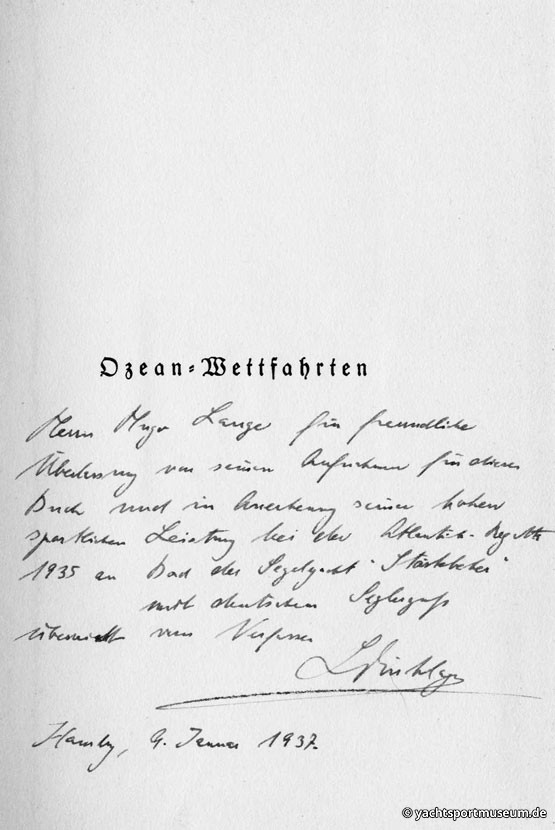 Ozean-Wettfahrten
Herrn Hugo Lange für freundliche
Überlassung von seinen Aufnahmen für dieses
Buch und in Anerkennung seiner hohen
sportlichen Leistung bei der Atlantik-Regatta
1935 an Bord der Segelyacht "Störtebeker"
mit deutschem Seglergruß
überreicht vom Verfasser
Hamburg, 9. Januar 1937.
© yachtsportmuseum.de